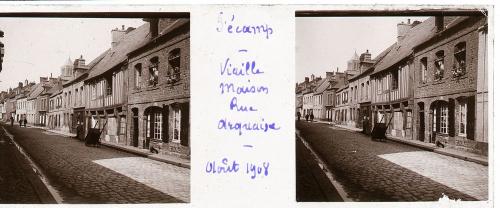 Fécamp
—
Vieille
Maison
Rue
Arquaise
—
Août 1908